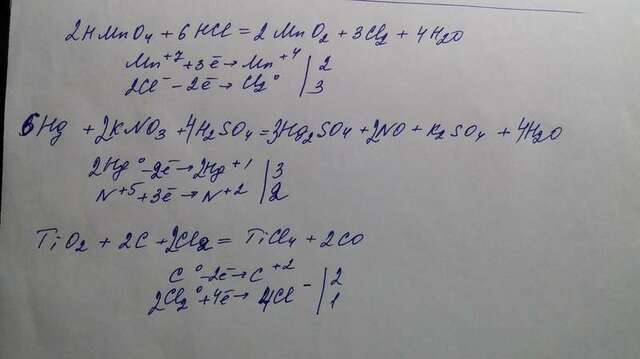 2HMnO₄ + 6HCl = 2MnO₂ + 3Cl₂ + 4H₂O
Mn⁺⁷ + 3ē → Mn⁺⁴ | 2
2Cl⁻ - 2ē → Cl₂⁰ | 3
6Hg + 2KNO₃ + 4H₂SO₄ = 3Hg₂SO₄ + 2NO + K₂SO₄ + 4H₂O
2Hg⁰ - 2ē → 2Hg⁺¹ | 3
N⁺⁵ + 3ē → N⁺² | 2
TiO₂ + 2C + 2Cl₂ = TiCl₄ + 2CO
C⁰ - 2ē → C⁺² | 2
2Cl₂⁰ + 4ē → 4Cl⁻ | 1